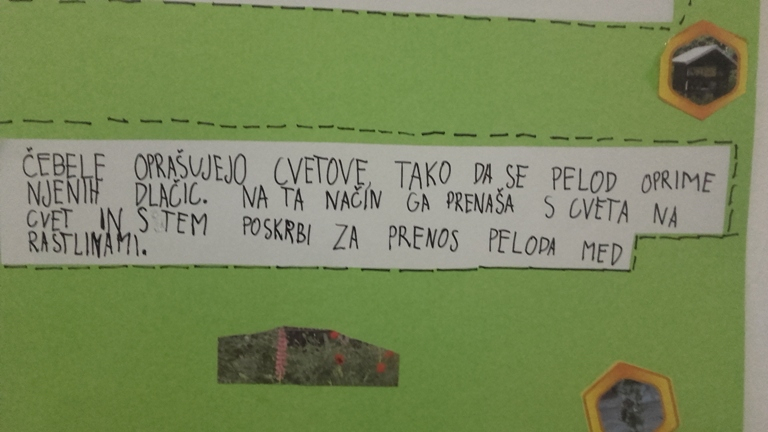 ČEBELE OPRAŠUJEJO CVETOVE, TAKO DA SE PELOD OPRIME
NJENIH DLAČIC. NA TA NAČIN GA PRENAŠA S CVETA NA
CVET IN S TEM POSKRBI ZA PRENOS PELODA MED
RASTLINAMI.